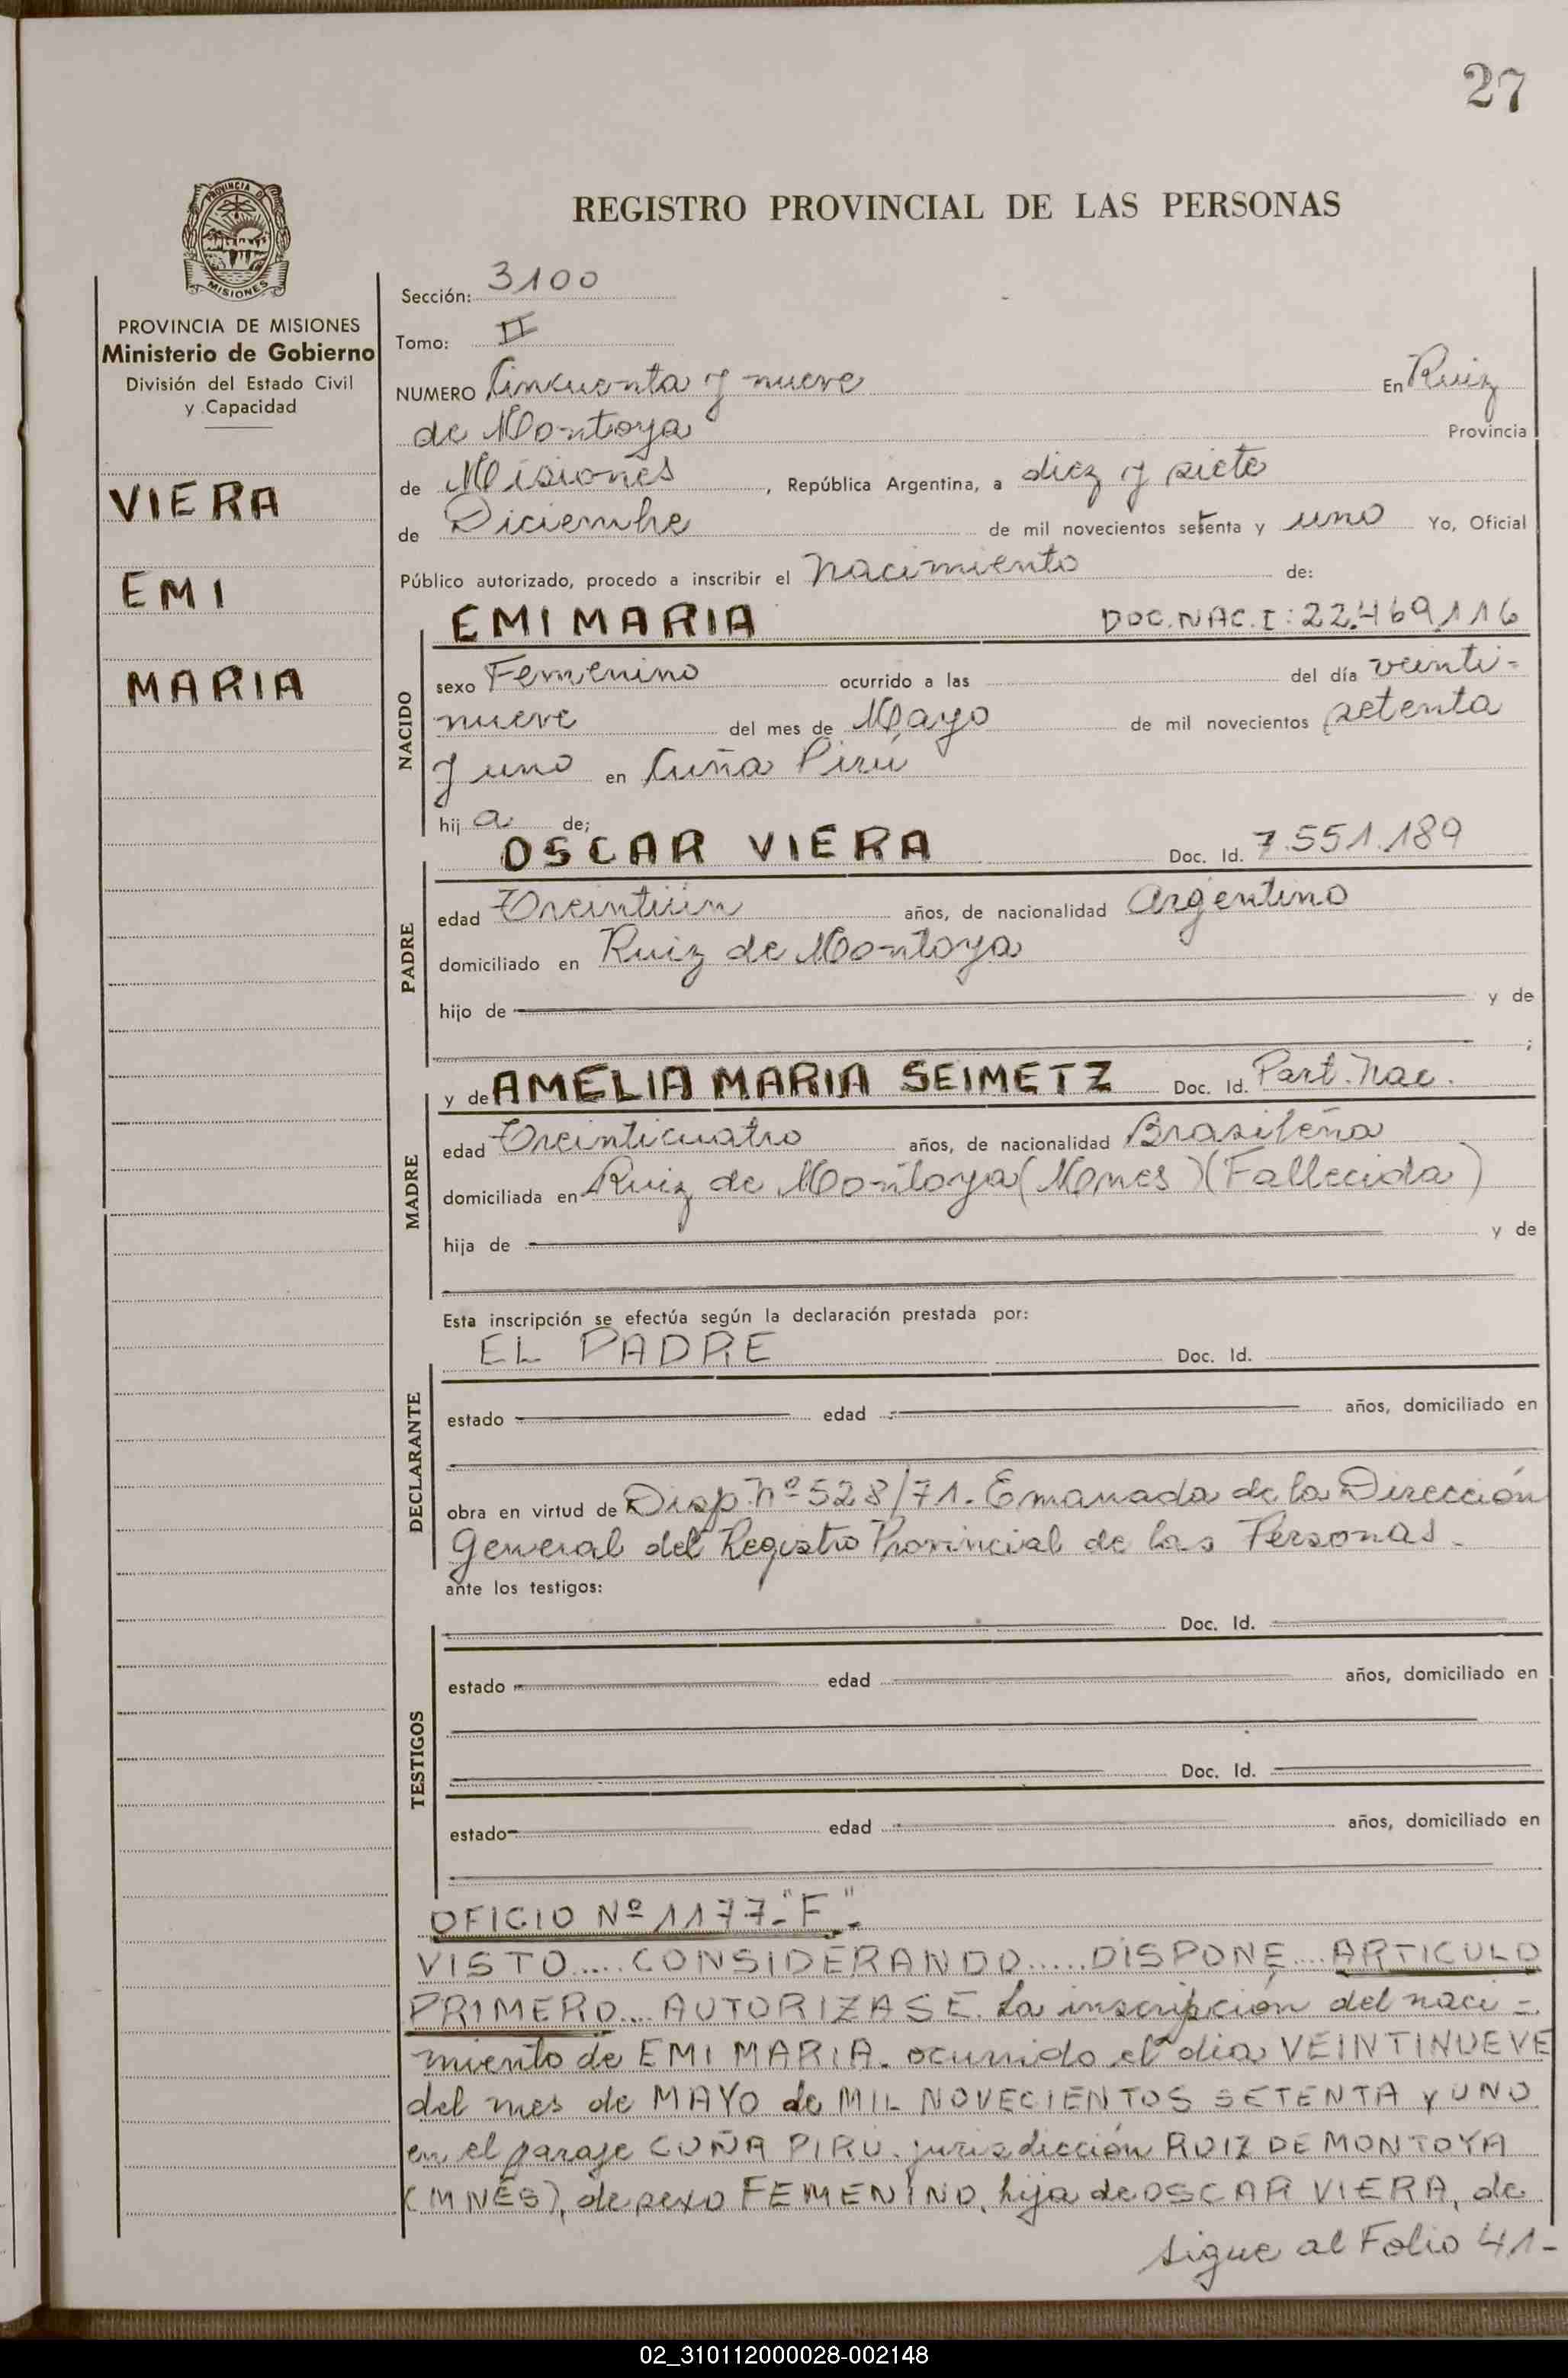 27
PROVINCIA DE
MISIONES
REGISTRO PROVINCIAL DE LAS PERSONAS
PROVINCIA DE MISIONES
Ministerio de Gobierno
División del Estado Civil
y Capacidad
VIERA
EMI
MARIA
Sección: 3100
Tomo: II
NUMERO Cincuenta y nueve En Ruiz
de Montoya Provincia
de Misiones, República Argentina, a diez y siete
de Diciembre de mil novecientos setenta y uno Yo, Oficial
Público autorizado, procedo a inscribir el nacimiento de:
NACIDO
EMI MARIA DOC. NAC. I: 22.469.116
sexo Femenino ocurrido a las del día veinti-
nueve del mes de Mayo de mil novecientos setenta
y uno en Cuña Pirú
hija de;
PADRE
OSCAR VIERA Doc. Id. 7.551.189
edad Treintiún años, de nacionalidad Argentino
domiciliado en Ruiz de Montoya
hijo de y de
;
MADRE
y de AMELIA MARIA SEIMETZ Doc. Id. Part. Nac.
edad Treinticuatro años, de nacionalidad Brasileña
domiciliada en Ruiz de Montoya (Mnes) (Fallecida)
hija de y de
Esta inscripción se efectúa según la declaración prestada por:
DECLARANTE
EL PADRE Doc. Id.
estado edad años, domiciliado en
obra en virtud de Disp. Nº 528/71. Emanada de la Dirección
General del Registro Provincial de las Personas.
ante los testigos:
TESTIGOS
Doc. Id.
estado edad años, domiciliado en
Doc. Id.
estado edad años, domiciliado en
OFICIO Nº 1177-"F".
VISTO.....CONSIDERANDO.....DISPONE....ARTICULO
PRIMERO....AUTORIZASE. La inscripción del naci-
miento de EMI MARIA. ocurrido el dia VEINTINUEVE
del mes de MAYO de MIL NOVECIENTOS SETENTA y UNO
en el paraje CUÑA PIRÚ. jurisdicción RUIZ DE MONTOYA
(MNES), de sexo FEMENINO, hija de OSCAR VIERA, de
sigue al Folio 41-
02_310112000028-002148